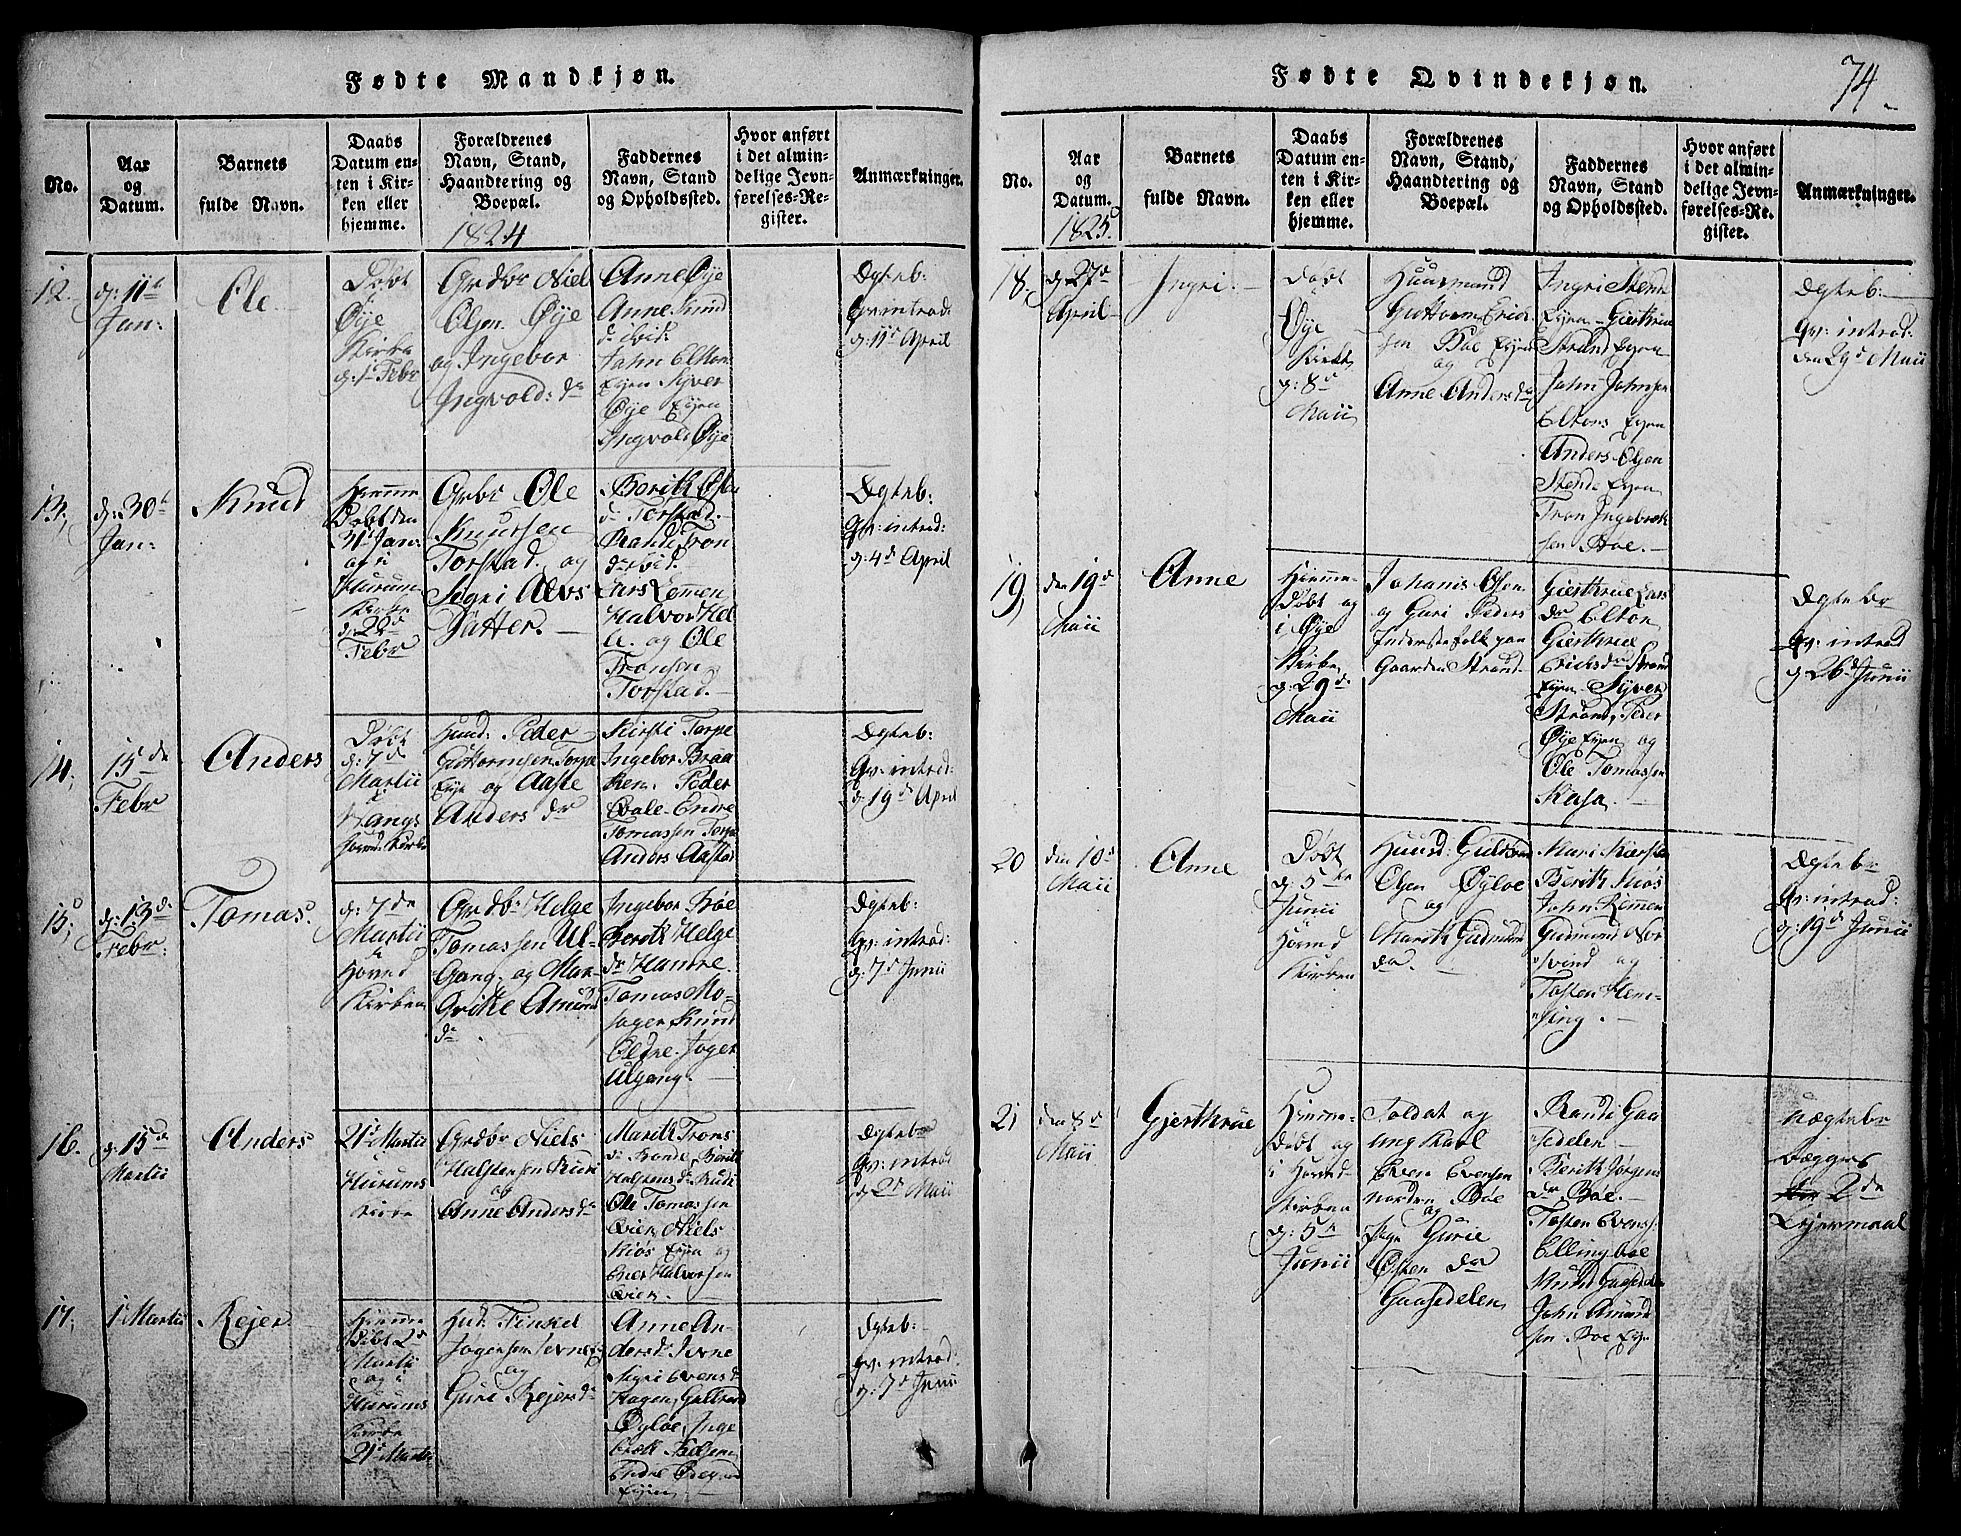 Fødte Mandkjøn.
No.
Aar
og
Datum.
Barnets
fulde Navn.
Daabs
Datum en-
ten i Kir-
ken eller
hjemme.
Forældrenes
Navn, Stand,
Haandtering og
Boepæl.
1824
Faddernes
Navn, Stand
og Opholdssted.
Hvor anført
i det almin-
delige Jevn-
førelses-Re-
gister.
Anmærkninger.
12.
d: 11te
Jan:
Ole
Døbt
Øye
Kirke
d: 1 Febr
Grdbr Niel
Olsen Øye
og Ingebor
Ingvold: dr
Anne Øye
Anne Knud
dr ibid:
John Elton
Eyen Syver
Øye Eyen
Ingvold Øye
Ægteb:
Qv: introd
d: 11te April
13,
d: 30te
Jan:
Knud
Hiemme
Døbt den
31te Jan:
og i
Hurum
Kirke
d: 22de
Febr
Grbr Ole
Knudsen
Torstad og
Sigri Alvs
Datter.
Berith Olsen
dr Torstad.
Randi Tron
dr ibid.
Lars Remen
Halvor Hel
le. og Ole
Tronsen
Torstad.
Ægteb:
Qv: introd:
d: 4de April
14,
15de
Febr
Anders
Døbt
d: 7de
Martii
i
Vangs
Hoved Kirke
Huusd: Peder
Guttormsen Torpe
Eye og Aaste
Anders dr
Kirsti Torpe
Ingebor Braa
ken. Peder
Qvale. Endre
Tomassen Torpe
Anders Aastad
Ægteb:
Qv: introd:
d: 19de April
15,
d: 13de
Febr:
Tomas.
d: 7de
Martii
i
Hoved
Kirken
Grdbr Helge
Tomassen Ul-
gang. og Mar-
grithe Amund
dr.
Ingebor Bøe
Berith Helge
dr Hamre.
Tomas Mo-
Joger Knud
Oldre. Joger
Ulgang.
Ægteb:
Qv: introd:
d: 7de Junii
16.
d: 15de
Martii
Anders
21de Martii
i
Hurums
Kirke
Grdbr Niels
Halstensen Rudi
og
Anne Anders dr
Marith Trons
dr Bonde Berith
Halstens dr Rudi
Ole Tomassen
Qvien Niels
Kiøs Eyen og
Ener Halvorsen
Qvien.
Ægteb:
Qv: introd
d: 2de Maii
17,
1te Martii
Rejer
Hiemme
Døbt 2de
Martii
og i
Hurums
Kirke
21de Martii
Hud: Finkel
Jogensen Jevne
og
Guri Rejers dr
Anne An-
ders dr Jevne
Sigri Evens dr
Hagen, Guldbrand
Øyloe, Inge
bret
Endre
Eyen
Ægteb:
Qv: introd:
d: 7de Junii
Fødte Qvindekjøn.
74
No.
Aar
og
Datum.
1825
Barnets
fulde Navn.
Daabs
Datum en-
ten i Kir-
ken eller
hjemme.
Forældrenes
Navn, Stand,
Haandtering og
Boepæl.
Faddernes
Navn, Stand
og Opholdssted.
Hvor anført
i det almin-
delige Jevn-
førelses-Re-
gister.
Anmærkninger.
18.
d: 27de
April
Ingri
Døbt
i
Øye
Kirke
d: 8de
Maii
Huusmand
Guttorm Erics
sen Boe Eyen
og
Anne Anders dr
Ingri Stende
Eyen. Giertrue
Strand Eyen
John Johnsen
Eltons Eyen
Anders Olsen
Stende Eyen
Tron Ingebret
sen Boe.
Ægteb:
Qv: introd:
den 29de Maii
19,
den 19de
Maii
Anne
Hiemme
Døbt og
i Øye
Kirke
d: 29de
Maii
Johanis Olsen
og Guri Peders
Inderstefolk paa
Gaarden Strand
Giertrue Lars
dr Elton
Giertrue
Erichs dr Strand
Eyen. Syver
Strand, Peder
Øye Eyen og
Ole Tomassen
Kasa.
Ægtebr
Qv: introd
d 26de Junii
20
den 10de
Maii
Anne
Døbt
d: 5te
Junii
i
Hoved
Kirken
Huusd: Guldbrand
Olsen Øyloe
og
Marith Gudmund
dr.
Mari Kiersten
Berith Kiøs
John Remen
Gudmund Nor
svend og
Tosten Hem-
sing.
Ægtebr
Qv: introd:
d: 19de Junii
21
den 8de
Maii
Gjerthrue
Hiemme-
Døbt og
i Hoved-
Kirken
d: 5te
Junii
Soldat og
ung Karl
Even Evensen
norden Bøe
og
Pige Gurie
Østen dr
Gaasedelen
Randi Gaa
sedelen
Berith Jørgens
dr Bøe.
Tosten Evens:
Elling boe
Knud Gaasedelen
John Amund
sen Boe Eye
Uægtebr
Begges
2de
Leyermaal